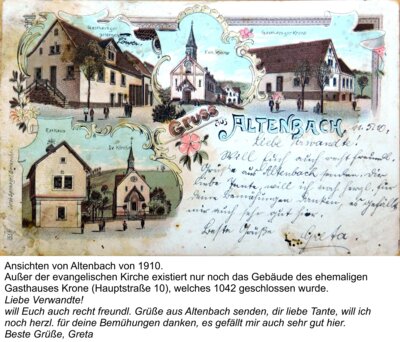 Gasthaus zur
Löwen
Ev. Kirche
Gasthaus zur Krone
GRUSS aus ALTENBACH.
Liebe Verwandte!
Will Euch auch recht freundl.
Grüße aus Altenbach senden, dir
liebe Tante, will ich noch herzl. für
deine Bemühungen danken, es gefällt
mir auch sehr gut hier.
Beste Grüße,
Greta.
Rathaus
Kirche
Ansichten von Altenbach von 1910.
Außer der evangelischen Kirche existiert nur noch das Gebäude des ehemaligen
Gasthauses Krone (Hauptstraße 10), welches 1042 geschlossen wurde.
Liebe Verwandte!
will Euch auch recht freundl. Grüße aus Altenbach senden, dir liebe Tante, will ich
noch herzl. für deine Bemühungen danken, es gefällt mir auch sehr gut hier.
Beste Grüße, Greta